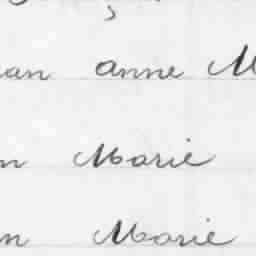 an anne M
n Marie
n Marie